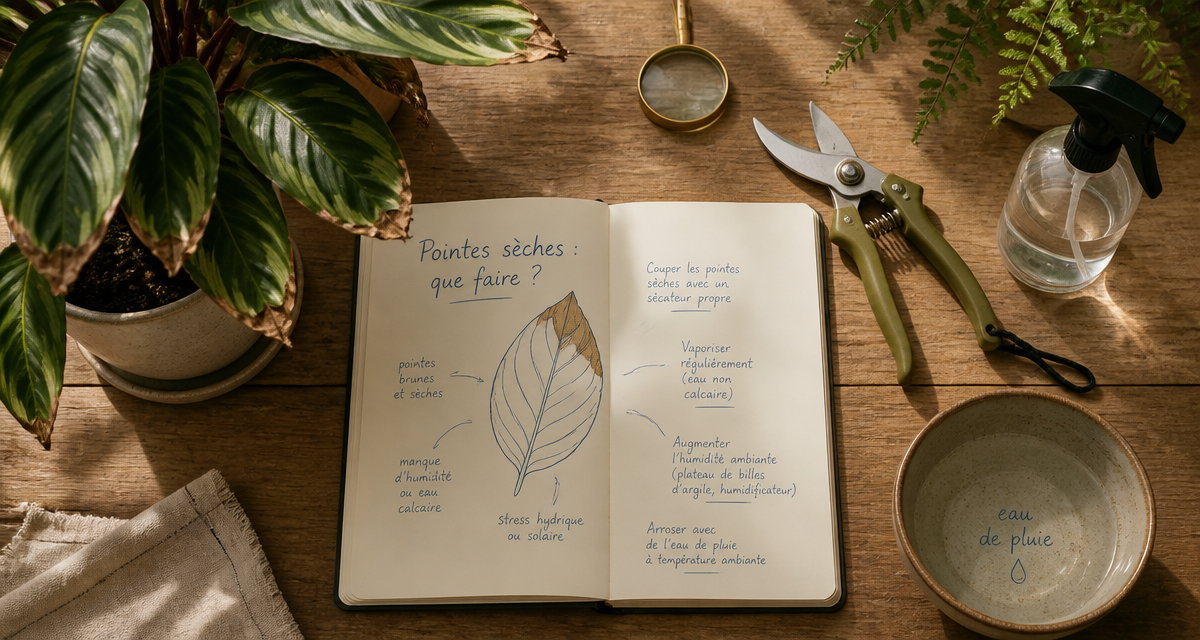 Pointes sèches :
que faire ?
pointes
brunes
et sèches
manque
d'humidité
ou eau
calcaire
stress hydrique
ou solaire
Couper les pointes
sèches avec un
sécateur propre
Vaporiser
régulièrement
(eau non
calcaire)
Augmenter
l'humidité ambiante
(plateau de billes
d'argile, humidificateur)
Arroser avec
de l'eau de pluie
à température ambiante
eau
de pluie